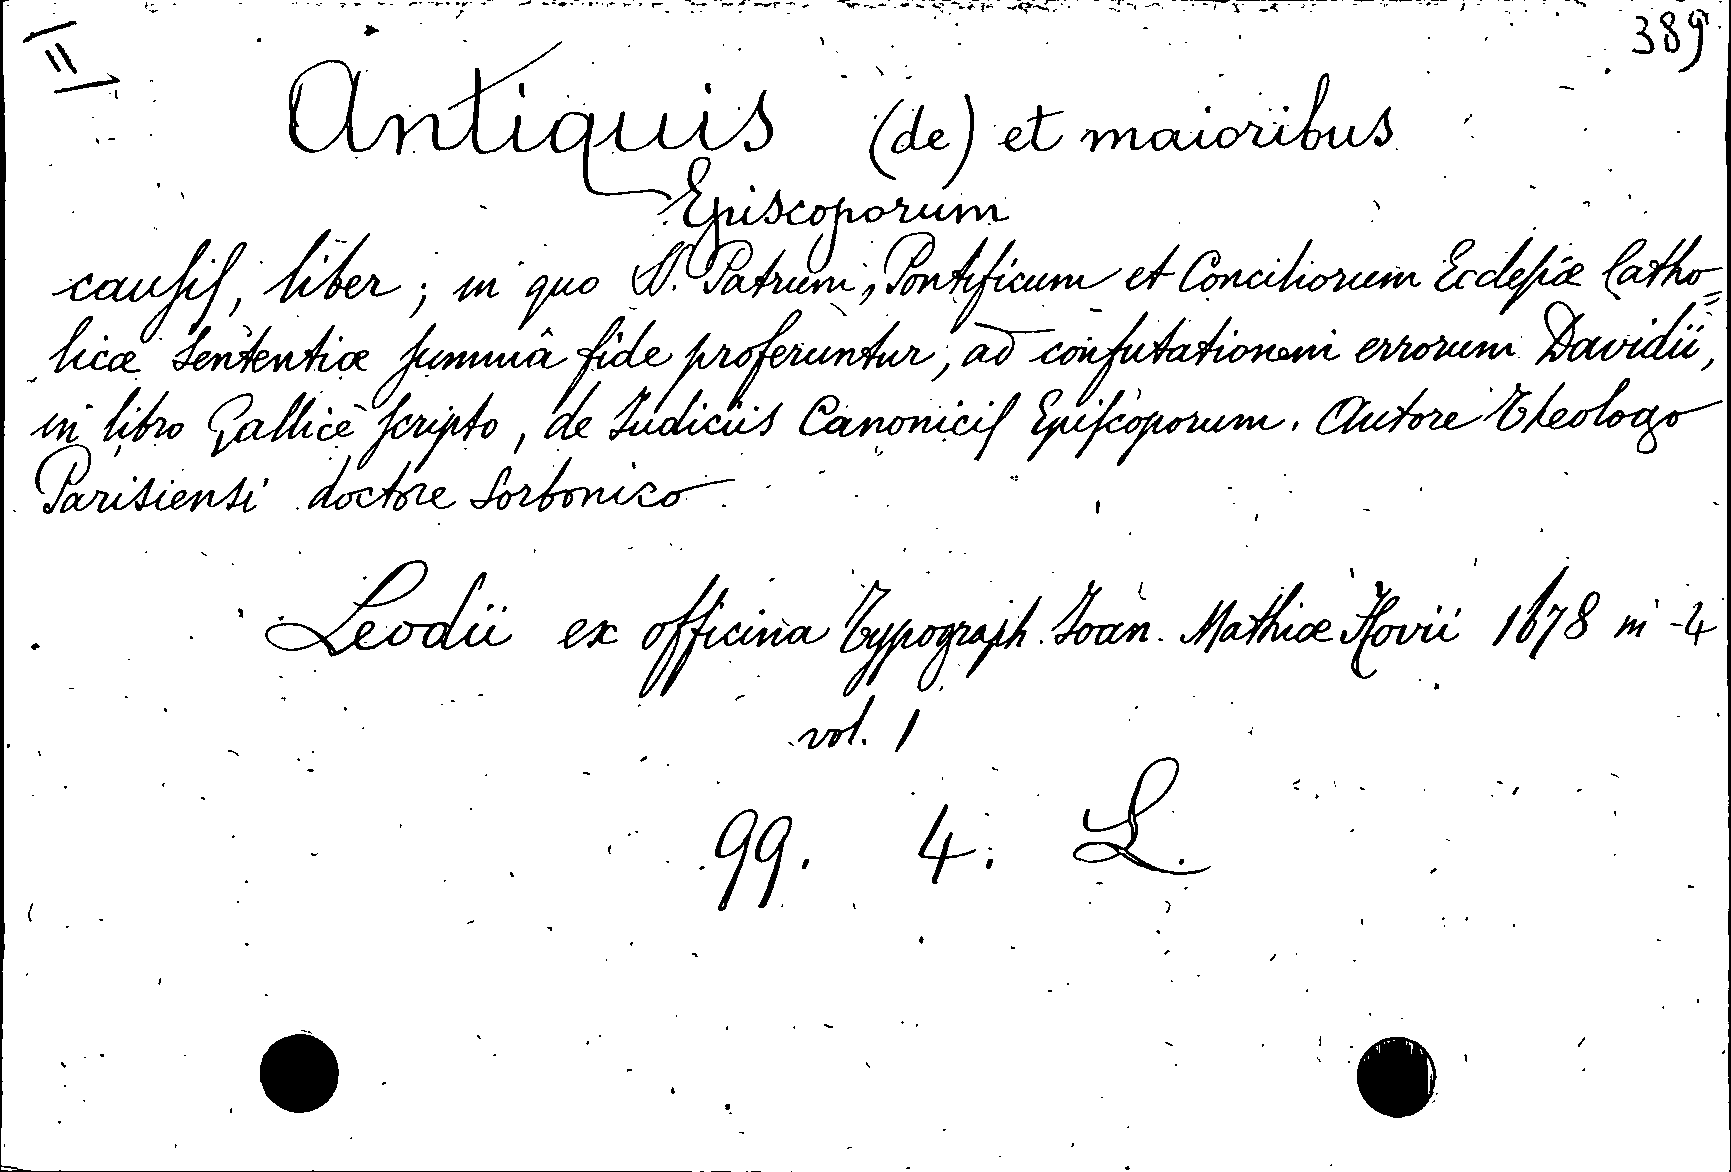 II
389
Antiquis (de) et maioribus
Episcoporum
causis, liber ; in quo SS. Patrum, Pontificum et Conciliorum Ecclesiæ Catho=
licæ Sententiæ summâ fide proferuntur, ad confutationem errorum Davidii,
in libro Gallicè scripto, de Iudiciis Canonicis Episcoporum. Autore Theologo
Parisiensi doctore Sorbonico
Leodii ex officina Typograph. Ioan. Mathiæ Hovii 1678 in-4
vol. 1
99. 4. L.